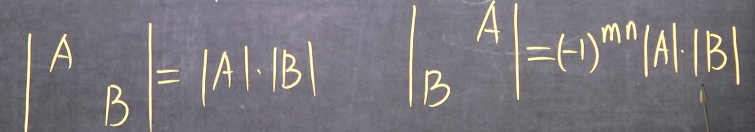 | A B | = |A|·|B|
| A B | = (-1)^{mn} |A|·|B|